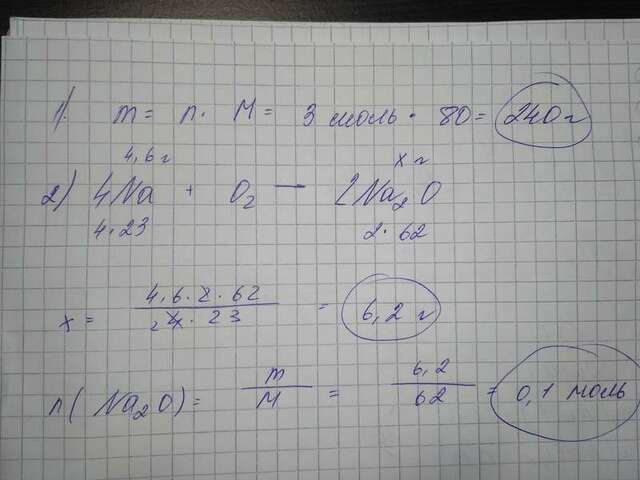 1). m = n · M = 3 моль · 80 = 240 г
4,6 г x г
2) 4Na + O₂ — 2Na₂O
4·23 2·62
x = 4,6·2·62 / 2 4·23 = 6,2 г
n(Na₂O) = m / M = 6,2 / 62 = 0,1 моль